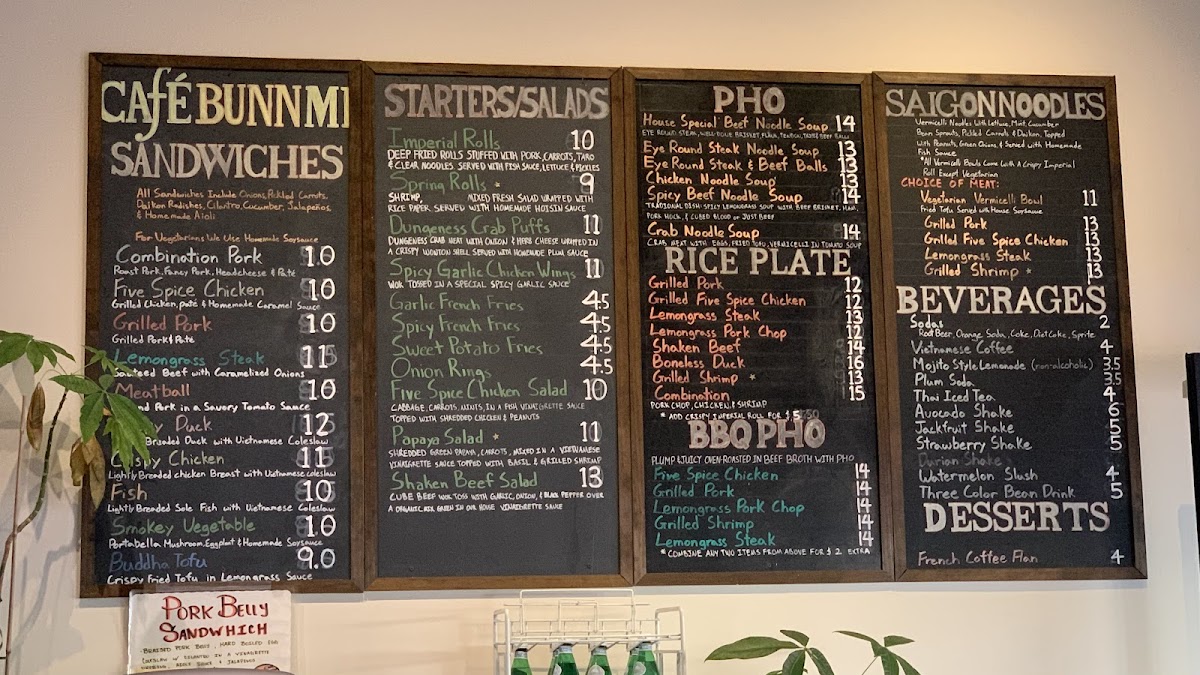 CAFÉ BUNN MI
SANDWICHES
All Sandwiches Include Onions, Pickled Carrots,
Daikon Radishes, Cilantro, Cucumber, Jalapeños,
& Homemade Aioli
For Vegetarians We Use Homemade Soysauce
Combination Pork 10
Roast Pork, Fancy Pork, Headcheese & Pate
Five Spice Chicken 10
Grilled Chicken, pate & Homemade Caramel Sauce
Grilled Pork 10
Grilled Pork & Pate
Lemongrass Steak 11
Sauteed Beef with Caramelized Onions
Meatball 10
Pork in a Savory Tomato Sauce
Duck 12
Breaded Duck with Vietnamese Coleslaw
Crispy Chicken 11
Lightly Breaded chicken Breast with Vietnamese coleslaw
Fish 10
Lightly Breaded Sole Fish with Vietnamese Coleslaw
Smokey Vegetable 10
Portabella Mushroom, Eggplant & Homemade Soysauce
Buddha Tofu 9.0
Crispy Fried Tofu in Lemongrass Sauce
PORK BELLY
SANDWHICH
BRAISED PORK BELLY, HARD BOILED EGG
STARTERS/SALADS
Imperial Rolls 10
DEEP FRIED ROLLS STUFFED WITH PORK, CARROTS, TARO
& CLEAR NOODLES. SERVED WITH FISH SAUCE, LETTUCE & PICKLES
Spring Rolls * 9
SHRIMP, MIXED FRESH SALAD WRAPPED WITH
RICE PAPER. SERVED WITH HOMEMADE HOISIN SAUCE
Dungeness Crab Puffs 11
DUNGENESS CRAB MEAT WITH ONION & HERB CHEESE WRAPPED IN
A CRISPY WONTON SHELL SERVED WITH HOMEMADE PLUM SAUCE
Spicy Garlic Chicken Wings 11
WOK TOSSED IN A SPECIAL SPICY GARLIC SAUCE
Garlic French Fries 4.5
Spicy French Fries 4.5
Sweet Potato Fries 4.5
Onion Rings 4.5
Five Spice Chicken Salad 10
CABBAGE, CARROTS, MINTS, IN A FISH VINEGRETTE SAUCE
TOPPED WITH SHREDDED CHICKEN & PEANUTS
Papaya Salad * 11
SHREDDED GREEN PAPAYA, CARROTS, MIXED IN A VIETNAMESE
VINAIGRETTE SAUCE TOPPED WITH BASIL & GRILLED SHRIMP
Shaken Beef Salad 13
CUBE BEEF WOK TOSS WITH GARLIC, ONION, & BLACK PEPPER OVER
A ORGANIC GREEN IN OUR HOUSE VINAIGRETTE SAUCE
PHO
House Special Beef Noodle Soup 14
EYE ROUND STEAK, WELL-DONE BRISKET, FLANK, TENDON, TRIPE & BEEF BALLS
Eye Round Steak Noodle Soup 13
Eye Round Steak & Beef Balls 13
Chicken Noodle Soup 13
Spicy Beef Noodle Soup 14
TRADITIONAL DISH: SPICY LEMONGRASS SOUP WITH BEEF BRISKET, HAM,
PORK HOCK, & CUBED BLOOD or JUST BEEF
Crab Noodle Soup 14
CRAB MEAT WITH EGGS, FRIED TOFU, VERMICELLI IN TOMATO SOUP
RICE PLATE
Grilled Pork 12
Grilled Five Spice Chicken 12
Lemongrass Steak 13
Lemongrass Pork Chop 12
Shaken Beef 14
Boneless Duck 16
Grilled Shrimp * 13
Combination 15
PORK CHOP, CHICKEN & SHRIMP
* ADD CRISPY IMPERIAL ROLL FOR $5
BBQ PHO
PLUMP & JUICY OVEN-ROASTED IN BEEF BROTH WITH PHO
Five Spice Chicken 14
Grilled Pork 14
Lemongrass Pork Chop 14
Grilled Shrimp 14
Lemongrass Steak 14
* COMBINE ANY TWO ITEMS FROM ABOVE FOR $2 EXTRA
SAIGON NOODLES
Vermicelli Noodles With Lettuce, Mint, Cucumber
Bean Sprouts, Pickled Carrots & Daikon, Topped
with Peanuts, Green Onions & Served with Homemade
Fish Sauce
*All Vermicelli Bowls Come With A Crispy Imperial
Roll Except Vegetarian
CHOICE OF MEAT:
Vegetarian Vermicelli Bowl 11
Fried Tofu Served with House Soysauce
Grilled Pork 13
Grilled Five Spice Chicken 13
Lemongrass Steak 13
Grilled Shrimp * 13
BEVERAGES
Sodas 2
Root Beer, Orange Soda, Coke, Diet Coke, Sprite
Vietnamese Coffee 4
Mojito Style Lemonade (non-alcoholic) 3.5
Plum Soda 3.5
Thai Iced Tea 4
Avocado Shake 6
Jackfruit Shake 5
Strawberry Shake 5
Durian Shake
Watermelon Slush 4
Three Color Bean Drink 5
DESSERTS
French Coffee Flan 4